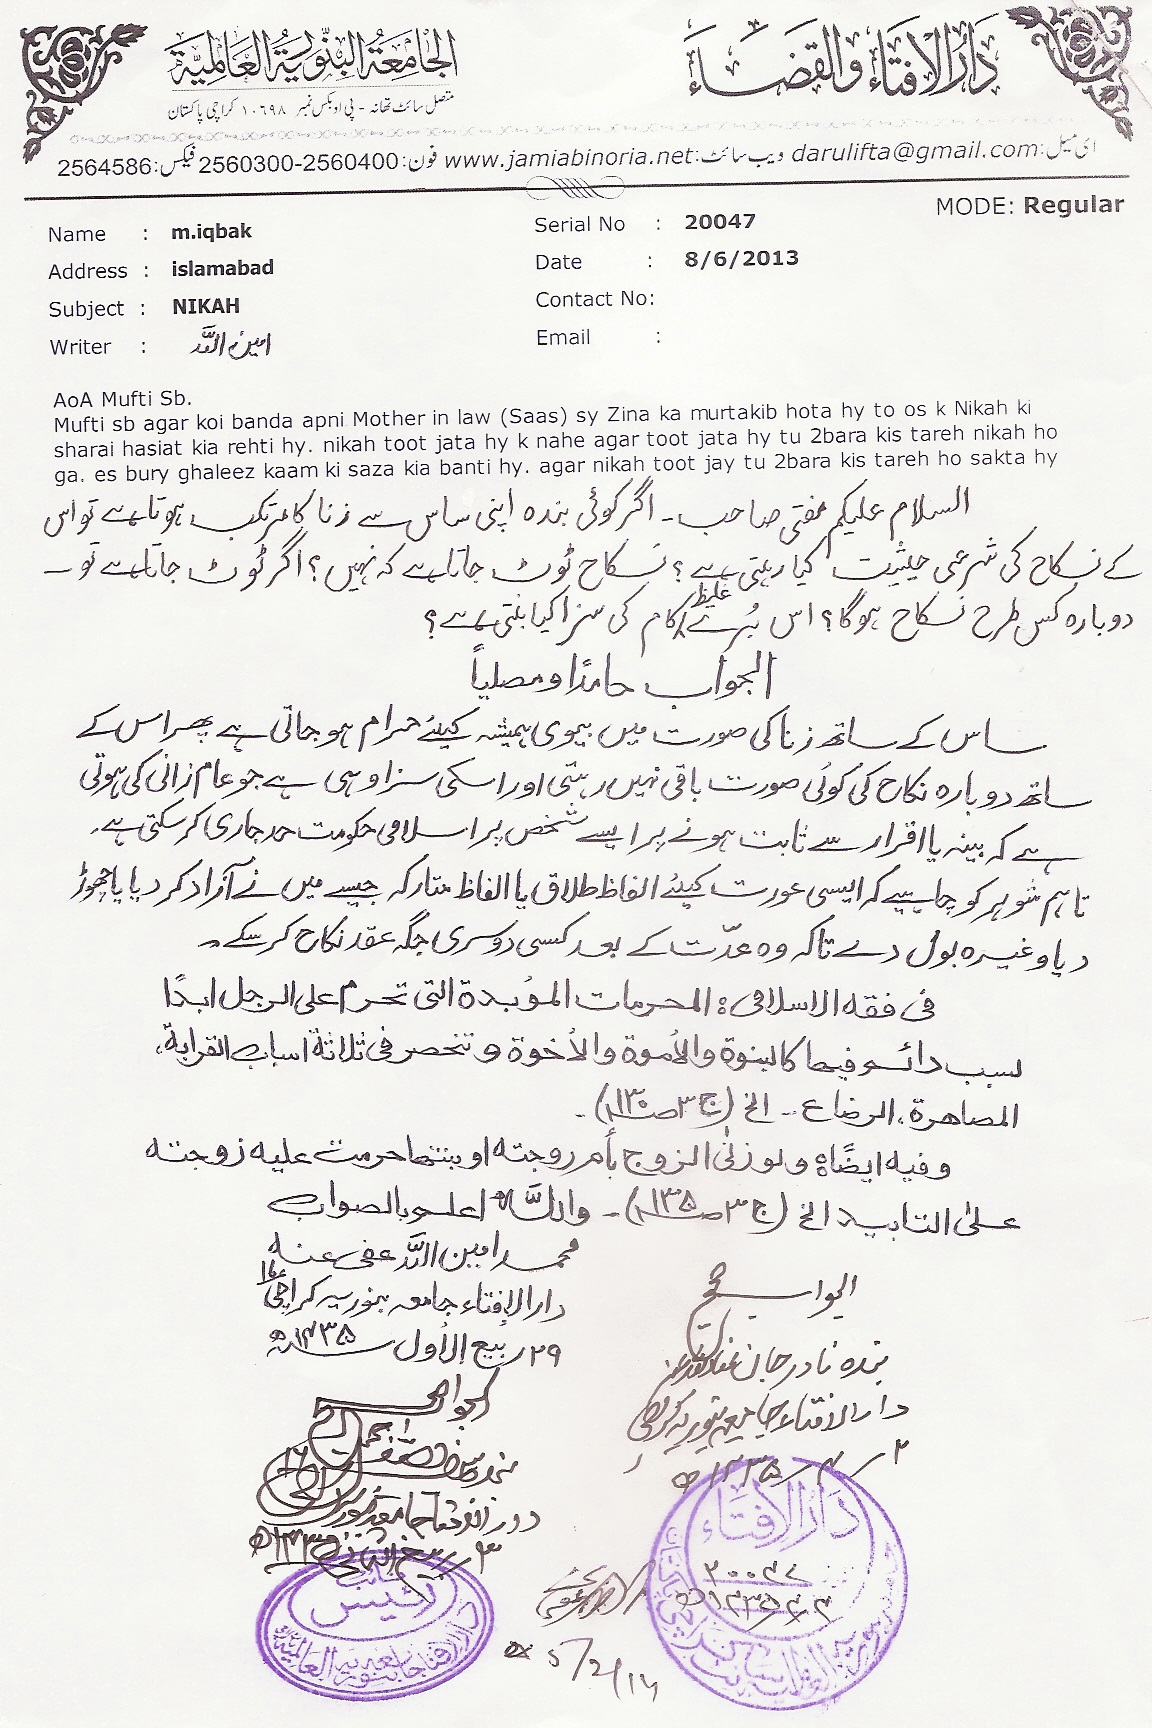 دَارُالاِفتَاء وَالقَضَاءَ
الجَامعَةُ البِنّورِيَّةُ العَالَمِيَّة
متصل سائٹ تھانہ - پی او بکس نمبر ۱۰۶۹۸ کراچی پاکستان
ای میل: darulifta@gmail.com ویب سائٹ: www.jamiabinoria.net فون: 2560300-2560400 فیکس: 2564586
MODE: Regular
Name : m.iqbak
Serial No : 20047
Address : islamabad
Date : 8/6/2013
Subject : NIKAH
Contact No:
Writer : امین اللہ
Email :
AoA Mufti Sb.
Mufti sb agar koi banda apni Mother in law (Saas) sy Zina ka murtakib hota hy to os k Nikah ki
sharai hasiat kia rehti hy. nikah toot jata hy k nahe agar toot jata hy tu 2bara kis tareh nikah ho
ga. es bury ghaleez kaam ki saza kia banti hy. agar nikah toot jay tu 2bara kis tareh ho sakta hy
السلام علیکم مفتی صاحب۔ اگر کوئی بندہ اپنی ساس سے زنا کا مرتکب ہوتا ہے تو اس
کے نکاح کی شرعی حیثیت کیا رہتی ہے؟ نکاح ٹوٹ جاتا ہے کہ نہیں؟ اگر ٹوٹ جاتا ہے تو ۔
دوبارہ کس طرح نکاح ہوگا؟ اس بُرے غلیظ کام کی سزا کیا بنتی ہے؟
الجواب حامدًا ومصلیاً
ساس کے ساتھ زنا کی صورت میں بیوی ہمیشہ کیلئے حرام ہو جاتی ہے پھر اس کے
ساتھ دوبارہ نکاح کی کوئی صورت باقی نہیں رہتی اور اسکی سزا وہی ہے جو عام زانی کی ہوتی
ہے کہ بینہ یا اقرار سے ثابت ہونے پر ایسے شخص پر اسلامی حکومت حد جاری کر سکتی ہے۔
تاہم شوہر کو چاہیے کہ ایسی عورت کیلئے الفاظ طلاق یا الفاظ متارکہ جیسے میں نے آزاد کر دیا یا چھوڑ
دیا وغیرہ بول دے تاکہ وہ عدّت کے بعد کسی دوسری جگہ عقد نکاح کر سکے۔
فی فقه الاسلامی: المحرمات المؤبدة التی تحرم علی الرجل ابدًا
لسبب دائم فیها کالبنوة والأموة والأخوة وتنحصر فی ثلاثة اسباب القرابة،
المصاهرة، الرضاع۔۔ الخ (ج ۳ ص ۱۳۰)۔
وفیه ایضًا: ولو زنیٰ الزوج بأم زوجته او بنتها حرمت علیه زوجته
علیٰ التابید الخ (ج ۳ ص ۱۳۵)۔ واللہ اعلم بالصواب
محمد امین اللہ عفی عنہ
دار الإفتاء جامعہ بنوریہ کراچی ۱۶
۲۹ ربیع الأول ۱۴۳۵ھ
الجواب صحیح
بندہ نادر جان
دار الافتاء جامعہ بنوریہ کراچی
۱۴۳۵ھ
الجواب صحیح
۱۴۳۵ھ
دَارُ الاِفتَاء
۲۰۰۴۷
رئیس
دارالافتاء جامعہ بنوریہ العالمیہ